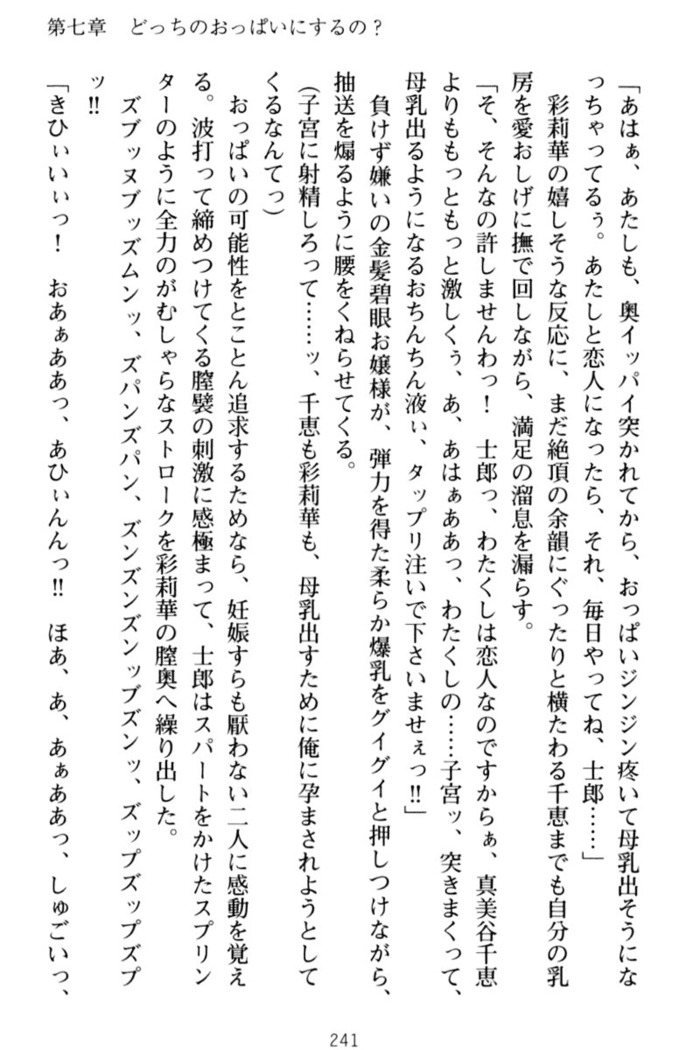 第七章　どっちのおっぱいにするの？
「あはぁ、あたしも、奥イッパイ突かれてから、おっぱいジンジン疼いて母乳出そうにな
っちゃってるぅ。あたしと恋人になったら、それ、毎日やってね、士郎……」
　彩莉華の嬉しそうな反応に、まだ絶頂の余韻にぐったりと横たわる千恵までも自分の乳
房を愛おしげに撫で回しながら、満足の溜息を漏らす。
「そ、そんなの許しませんわっ！　士郎っ、わたくしは恋人なのですからぁ、真美谷千恵
よりももっともっと激しくぅ、あ、あはぁああっ、わたくしの……子宮ッ、突きまくって、
母乳出るようになるおちんちん液ぃ、タップリ注いで下さいませぇっ!!」
　負けず嫌いの金髪碧眼お嬢様が、弾力を得た柔らか爆乳をグイグイと押しつけながら、
抽送を煽るように腰をくねらせてくる。
（子宮に射精しろって……ッ、千恵も彩莉華も、母乳出すために俺に孕まされようとして
くるなんてっ）
　おっぱいの可能性をとことん追求するためなら、妊娠すらも厭わない二人に感動を覚え
る。波打って締めつけてくる膣襞の刺激に感極まって、士郎はスパートをかけたスプリン
ターのように全力のがむしゃらなストロークを彩莉華の膣奥へ繰り出した。
　ズブッヌブッズムンッ、ズパンズパン、ズンズンズンッブズンッ、ズップズップズプ
ッ!!
「きひぃいぃっ！　おあぁああっ、あひぃんんっ!!　ほあ、あ、あぁああっ、しゅごいっ、
241